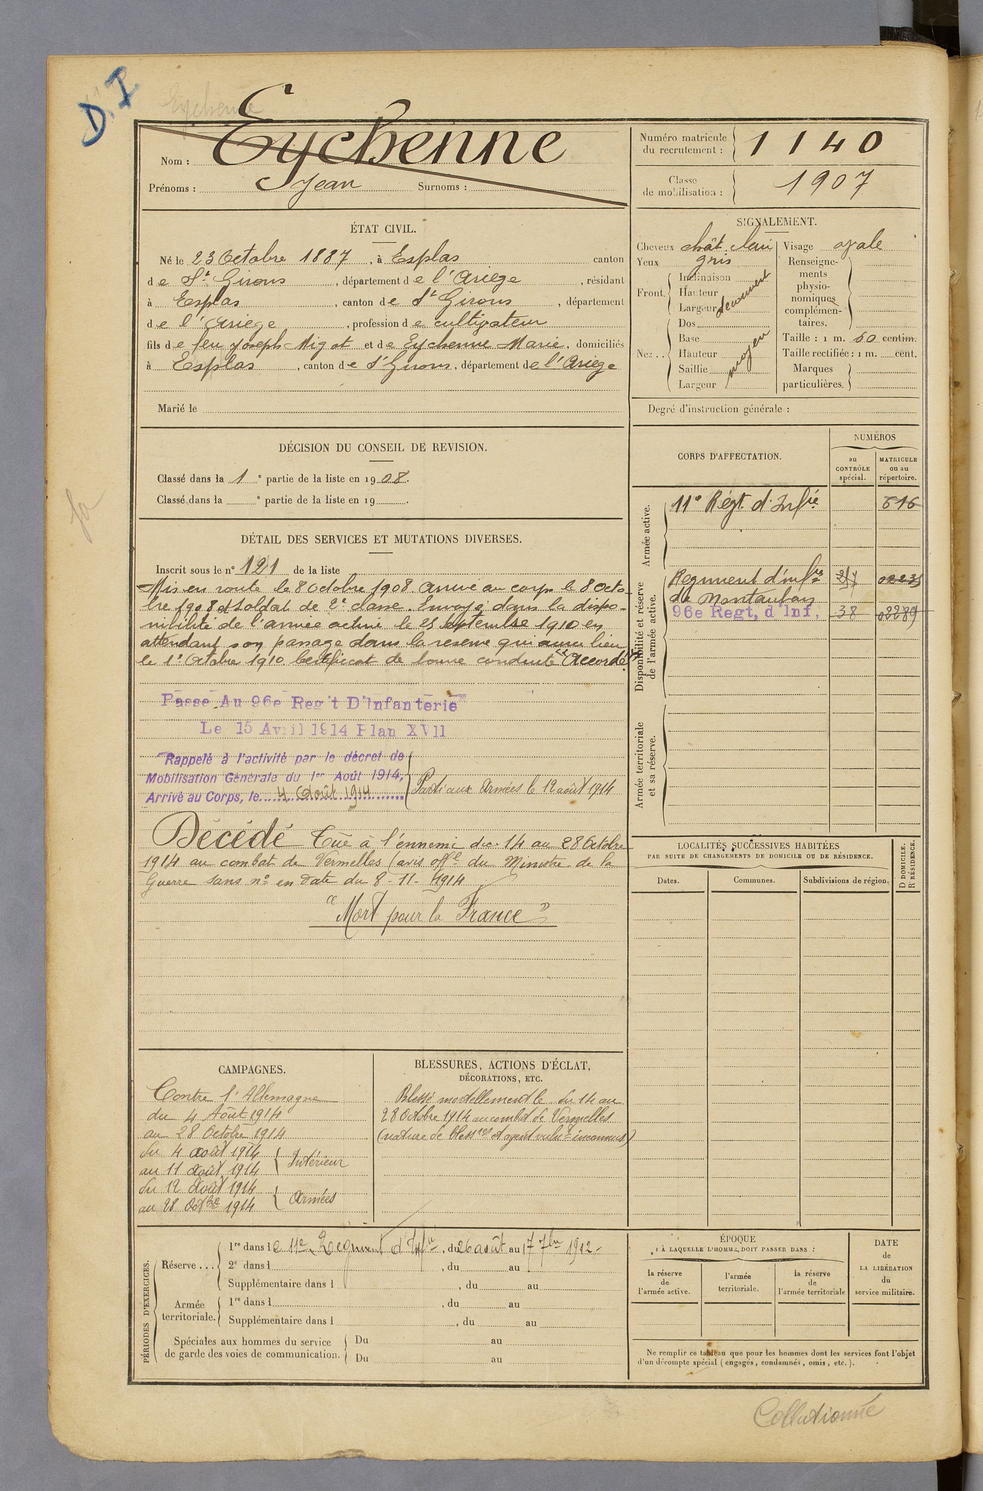 D.I
Eychenne
Nom : Eychenne
Prénoms : Jean Surnoms :
Numéro matricule du recrutement : 1140
Classe de mobilisation : 1907
ÉTAT CIVIL.
Né le 23 Octobre 1887, à Esplas canton
de St Girons, département de l'Ariège, résidant
à Esplas, canton de St Girons, département
de l'Ariège, profession de cultivateur
fils de feu Joseph Migot et de Eychenne Marie, domiciliés
à Esplas, canton de St Girons, département de l'Ariège
Marié le
SIGNALEMENT.
Cheveux chât. clair
Yeux gris
Front. Inclinaison
Hauteur
Largeur
découvert
Nez. Dos
Base
Hauteur
Saillie
Largeur
moyen
Visage ovale
Renseignements physionomiques complémentaires.
Taille : 1 m. 60 centim.
Taille rectifiée : 1 m. cent.
Marques particulières.
Degré d'instruction générale :
DÉCISION DU CONSEIL DE REVISION.
Classé dans la 1e partie de la liste en 1908.
Classé dans la e partie de la liste en 19 .
CORPS D'AFFECTATION.
NUMÉROS
au CONTRÔLE spécial.
MATRICULE ou au répertoire.
Armée active.
11e Régt d'Infie 616
Disponibilité et réserve de l'armée active.
Régiment d'infie
de Montauban
96e Regt, d'Inf. 38 03289
Armée territoriale et sa réserve.
DÉTAIL DES SERVICES ET MUTATIONS DIVERSES.
Inscrit sous le n° 121 de la liste
Mis en route le 8 octobre 1908. Arrivé au corps le 8 octo-
bre 1908 et soldat de 2e classe. Envoyé dans la dispo-
nibilité de l'armée active le 25 septembre 1910 en
attendant son passage dans la reserve qui aura lieu
le 1er Octobre 1910. Certificat de bonne conduite "Accordé"
Passe Au 96e Reg't D'Infanterie
Le 15 Avril 1914 Plan XVII
Rappelé à l'activité par le décret de
Mobilisation Générale du 1er Août 1914,
Arrivé au Corps, le 4 Août 1914
Parti aux Armées le 12 août 1914
Décédé Tué à l'ennemi du 14 au 28 Octobre
1914 au combat de Vermelles (avis offel du Ministre de la
Guerre sans n° en date du 8-11-1914
"Mort pour la France"
LOCALITÉS SUCCESSIVES HABITÉES
PAR SUITE DE CHANGEMENTS DE DOMICILE OU DE RÉSIDENCE.
Dates.
Communes.
Subdivisions de région.
D DOMICILE.
R RÉSIDENCE.
CAMPAGNES.
Contre l'Allemagne
du 4 Août 1914
au 28 Octobre 1914
du 4 août 1914
au 11 août 1914 Intérieur
du 12 Août 1914
au 28 Octbre 1914 Armées
BLESSURES, ACTIONS D'ÉCLAT,
DÉCORATIONS, ETC.
Blessé mortellement le du 14 au
28 Octobre 1914 au combat de Vermelles
(nature de blessres et agent vulnt inconnus)
PÉRIODES D'EXERCICES.
Réserve ... 1re dans le 11e Régiment d'Infie, du 26 août au 17 7bre 1912.
2e dans l , du au
Supplémentaire dans l , du au
Armée territoriale. 1re dans l , du au
Supplémentaire dans l , du au
Spéciales aux hommes du service de garde des voies de communication. Du au
Du au
ÉPOQUE
À LAQUELLE L'HOMME DOIT PASSER DANS :
la réserve de l'armée active.
l'armée territoriale.
la réserve de l'armée territoriale
DATE DE LA LIBÉRATION du service militaire.
Ne remplir ce tableau que pour les hommes dont les services font l'objet
d'un décompte spécial (engagés, condamnés, omis, etc.).
Collationné